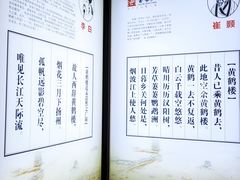 崔颢
【黄鹤楼】
昔人已乘黄鹤去，
此地空余黄鹤楼。
黄鹤一去不复返，
白云千载空悠悠。
晴川历历汉阳树，
芳草萋萋鹦鹉洲。
日暮乡关何处是，
烟波江上使人愁。
李白
【黄鹤楼送孟浩然之广陵】
故人西辞黄鹤楼，
烟花三月下扬州。
孤帆远影碧空尽，
唯见长江天际流